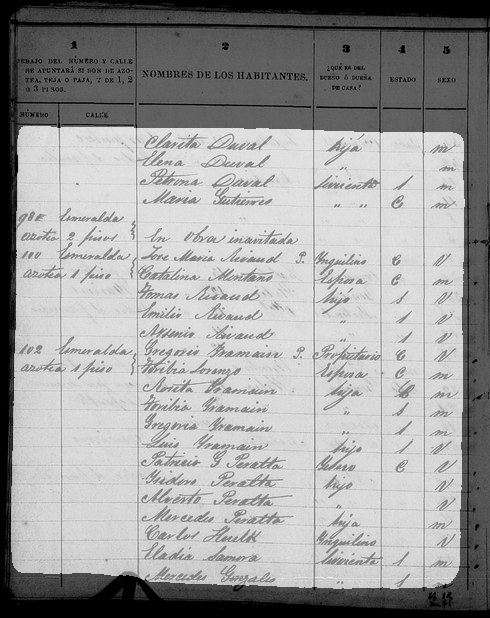 1 2 3 4 5
DEBAJO DEL NÚMERO Y CALLE
SE APUNTARÁ SI SON DE AZO-
TEA, TEJA O PAJA, Y DE 1, 2
O 3 PISOS.
NOMBRES DE LOS HABITANTES.
¿QUÉ ES DEL
DUEÑO Ó DUEÑA
DE CASA?
ESTADO
SEXO
NÚMERO CALLE
Clarita Duval hija m
Elena Duval " m
Petrona Duval sirvienta S m
Maria Gutierres " " C m
98 Esmeralda
azotea 2 pisos En obra inavitada
100 Esmeralda Jose Maria Rivaud P. Ynquilino C V
azotea 1 piso Catalina Montans Esposa C m
Tomas Rivaud hijo S V
Emilio Rivaud " S V
Arsenio Rivaud " S V
102 Esmeralda Gregorio Yramain P. Propietario C V
azotea 1 piso Toribia Lorenzo Esposa C m
Rosita Yramain hija C m
Toribia Yramain " S m
Gregoria Yramain " S m
Luis Yramain hijo S V
Patricio G Peralta Yerno C V
Ysidoro Peralta hijo V
Alverto Peralta " V
Mercedes Peralta hija m
Carlos Ynquilino V
Eladia Samora Sirvienta S m
Mercedes Gonzales " S